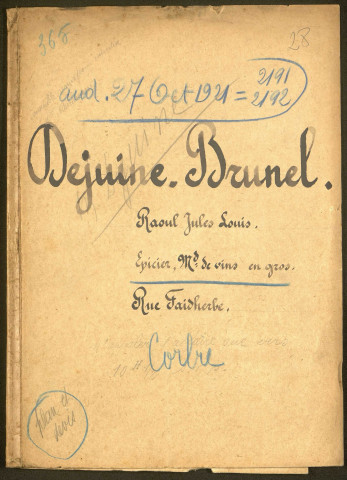 365
28
aud. 27 Oct 1921 = 2191
2192
Dejuine. Brunel.
Raoul Jules Louis.
Epicier, Md. de vins en gros.
Rue Faidherbe.
Corbre
plan et